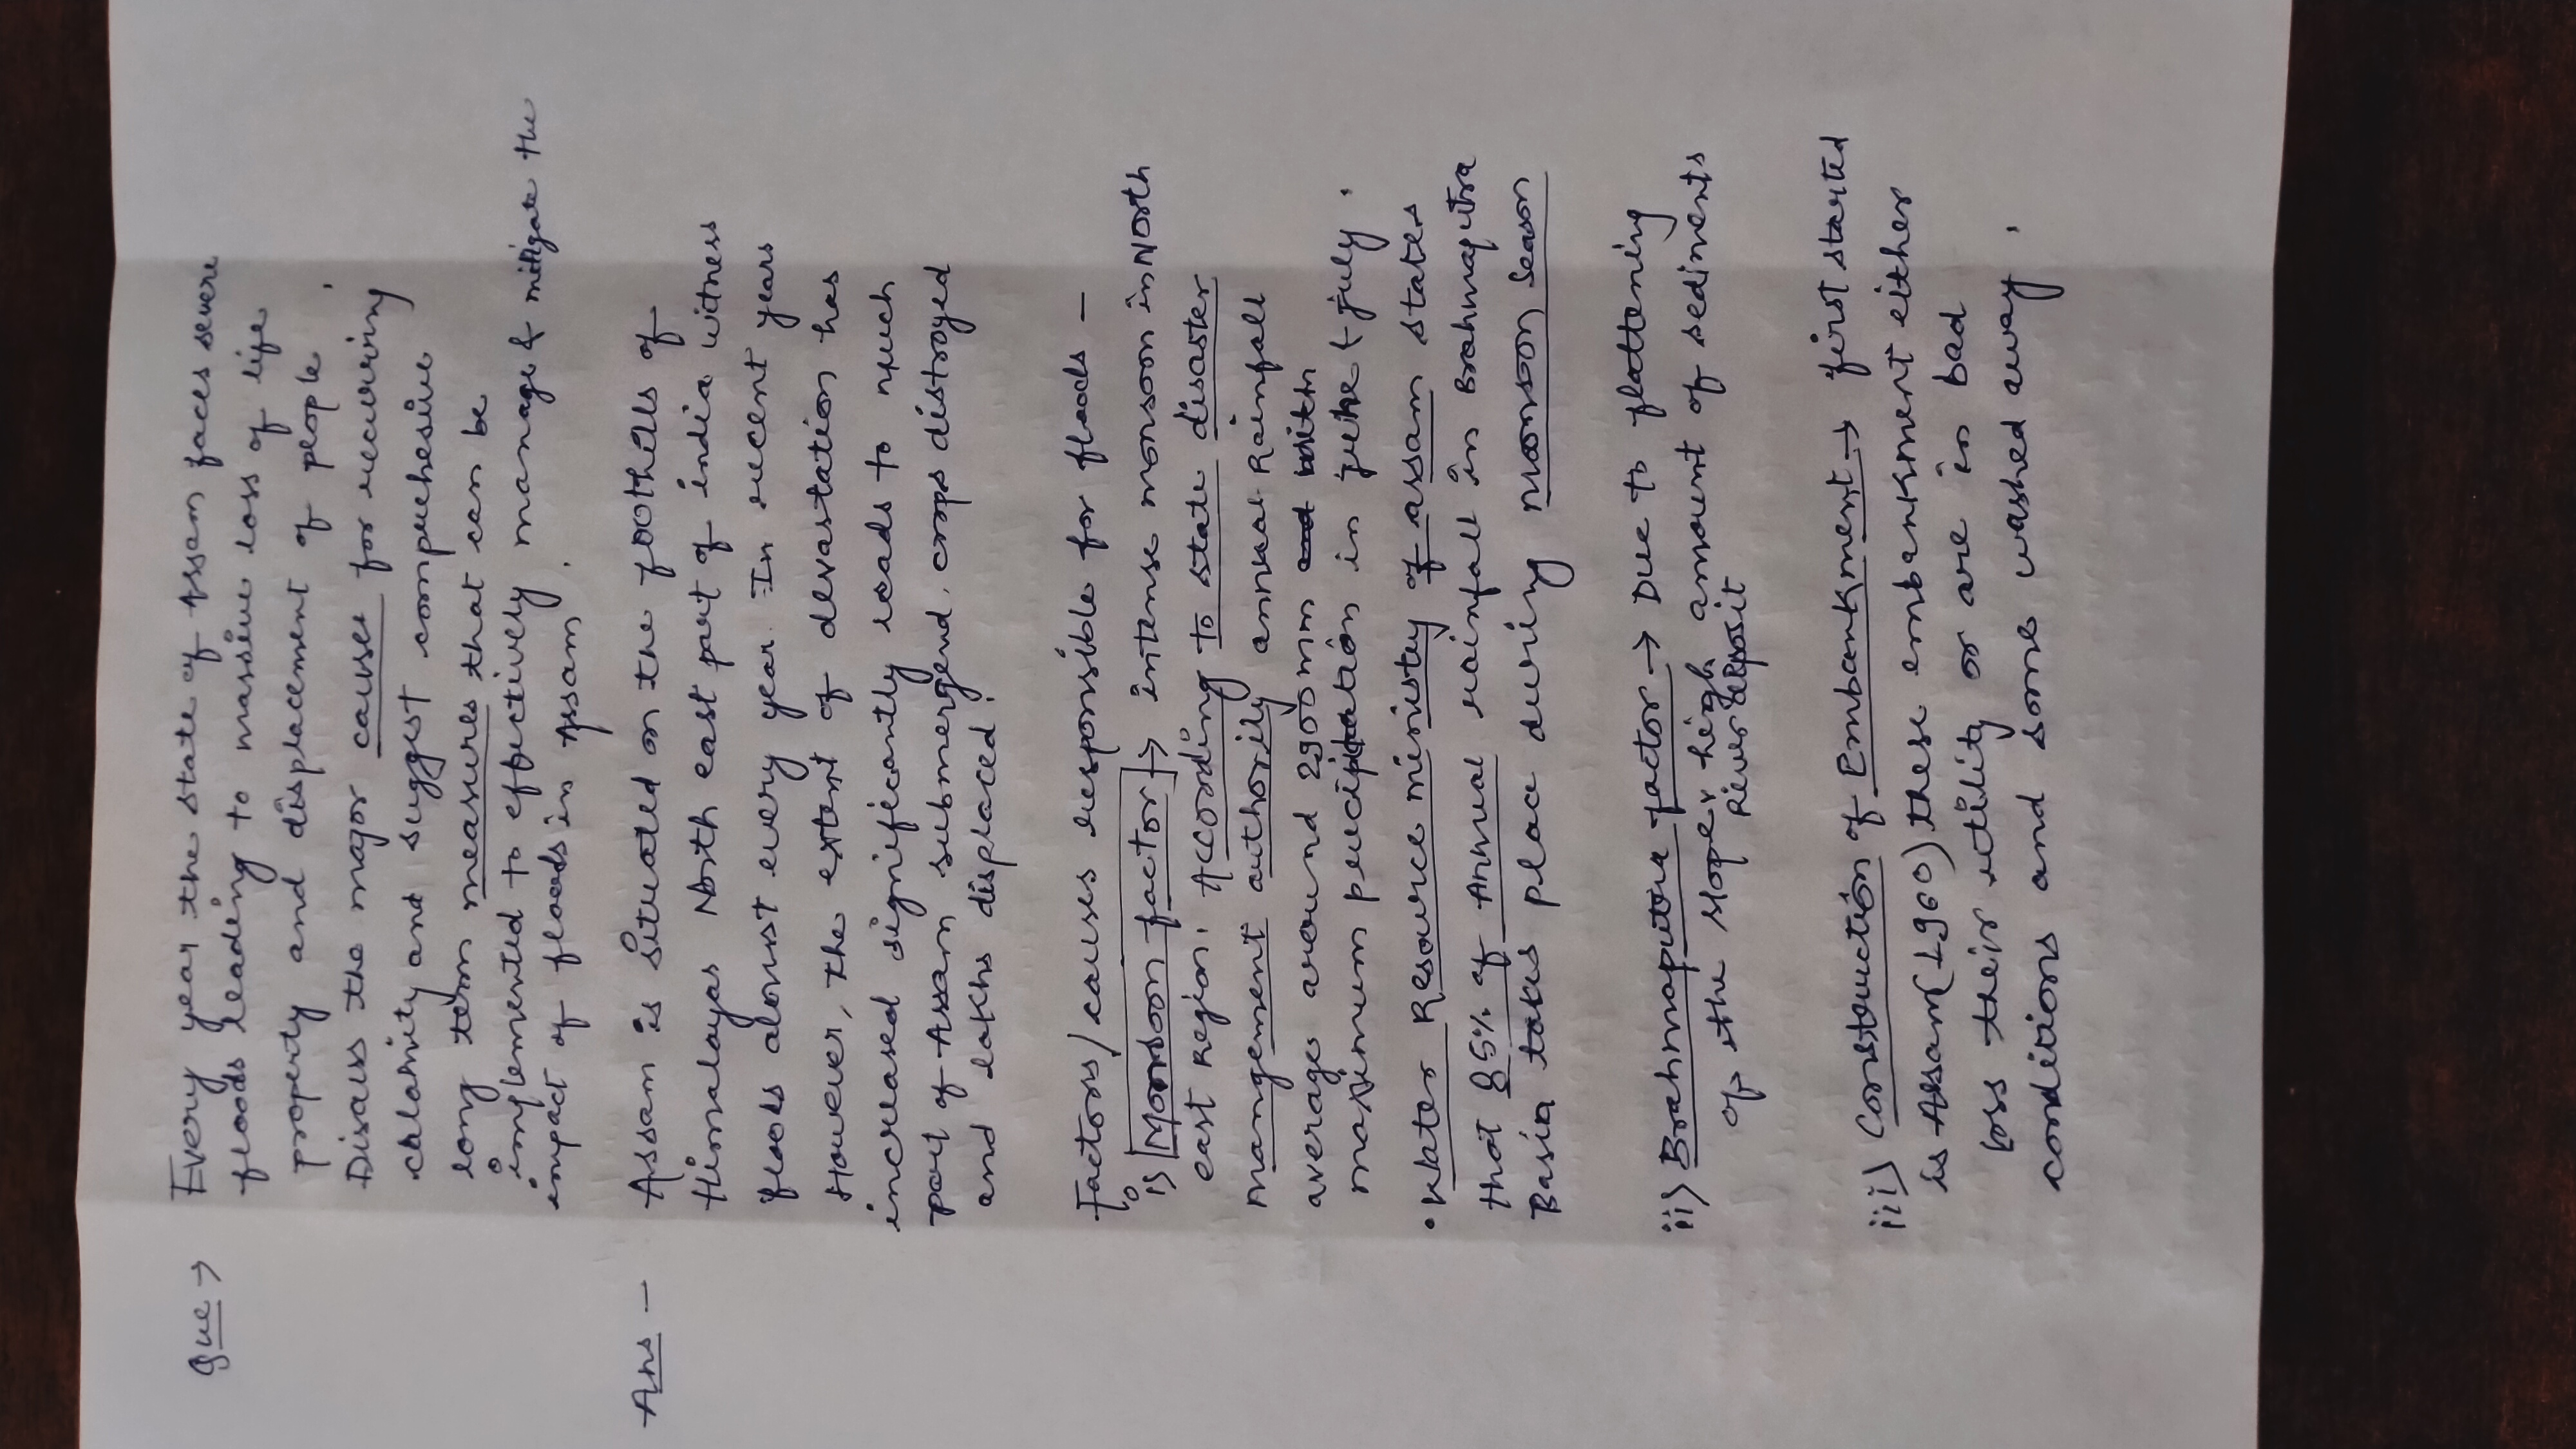 Que → Every year the state of Assam faces severe
floods leading to massive loss of life
property and displacement of people.
Disuss the major causes for recurring
calamity and suggest comprehesive
long term measures that can be
implemented to effectively manage & mitigate the
impact of floods in Assam.
Ans - Assam is Situated on the foothills of
Himalayas North east part of india witness
floods almost every year. In recent years
However, the extent of devastatation has
increased significantly leads to much
part of Assam submergend, crops distroyed
and lakhs displaced.
Factors/causes responsible for floods -
i) Monsoon factor → intense monsoon in North
east Region. According to state disaster
mangement authority annual Rainfall
average around 2900mm and with
maximum precipitation in june & july.
• Water Resource ministry of assam states
that 85% of Annual rainfall in Brahmaputra
Basin takes place during monsoon Season
ii) Brahmaputra factor → Due to flattening
of the slope, high amount of sediments
River deposit
iii) Construction of Embankment → first started
is Assam (1960) these embankment either
loss their utility or are in bad
conditions and some washed away.